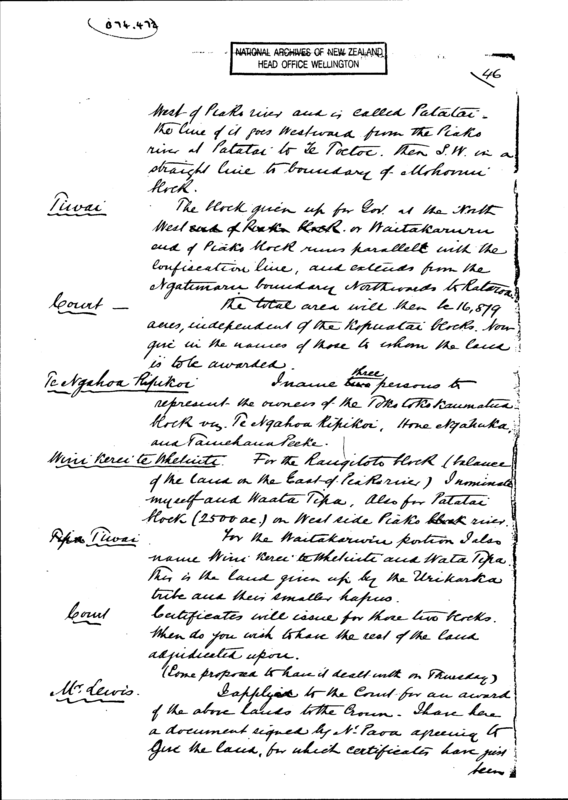 074.473
NATIONAL ARCHIVES OF NEW ZEALAND
HEAD OFFICE WELLINGTON
46
West of Piako river and is called Patatai -
the line of it goes Westward from the Piako
river at Patatai to Te Toetoe. then S.W. in a
straight line to boundary of
block.
Tiwai The block given up for Gov. at the North
West end of Piako block. or Waitakaruru
end of Piako block runs parallel with the
confiscation line, and extends from the
Ngatimaru boundary Northwards to
Court — the total area will then be 16,879
acres, independent of the Kopuatai blocks. Now
give in the names of those to whom the land
is to be awarded.
Te Ngahoa Ripikoi I name three persons to
represent the owners of the Tokotokokaumatua
block viz. Te Ngahoa Ripikoi, Hone Ngahuka,
and Tamehana Peeke.
Wini Kerei te Whetuite. For the Rangitoto block (balance
of the land on the East of Piako river) I nominate
myself and Waata Tipa, Also for Patatai
block (2500 ac.) on West side Piako river.
Tipa Tiwai For the Waitakaruru portion I also
name Wini Kerei te Whetuite and Wata Tipa.
This is the land given up by the Urikaraka
tribe and their smaller hapus.
Court Certificates will issue for those two blocks.
When do you wish to have the rest of the land
adjudicated upon.
(Some proposed to have it dealt with on Thursday)
Mr. Lewis. I applied to the Court for an award
of the above lands to the Crown - I have here
a document signed by N. Paoa agreeing to
give the land, for which certificates have just
been